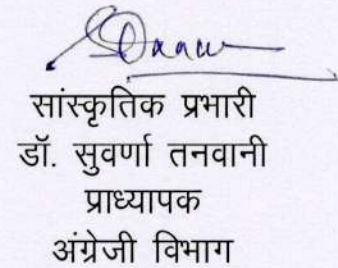 सांस्कृतिक प्रभारी
डॉ. सुवर्णा तनवानी
प्राध्यापक
अंग्रेजी विभाग